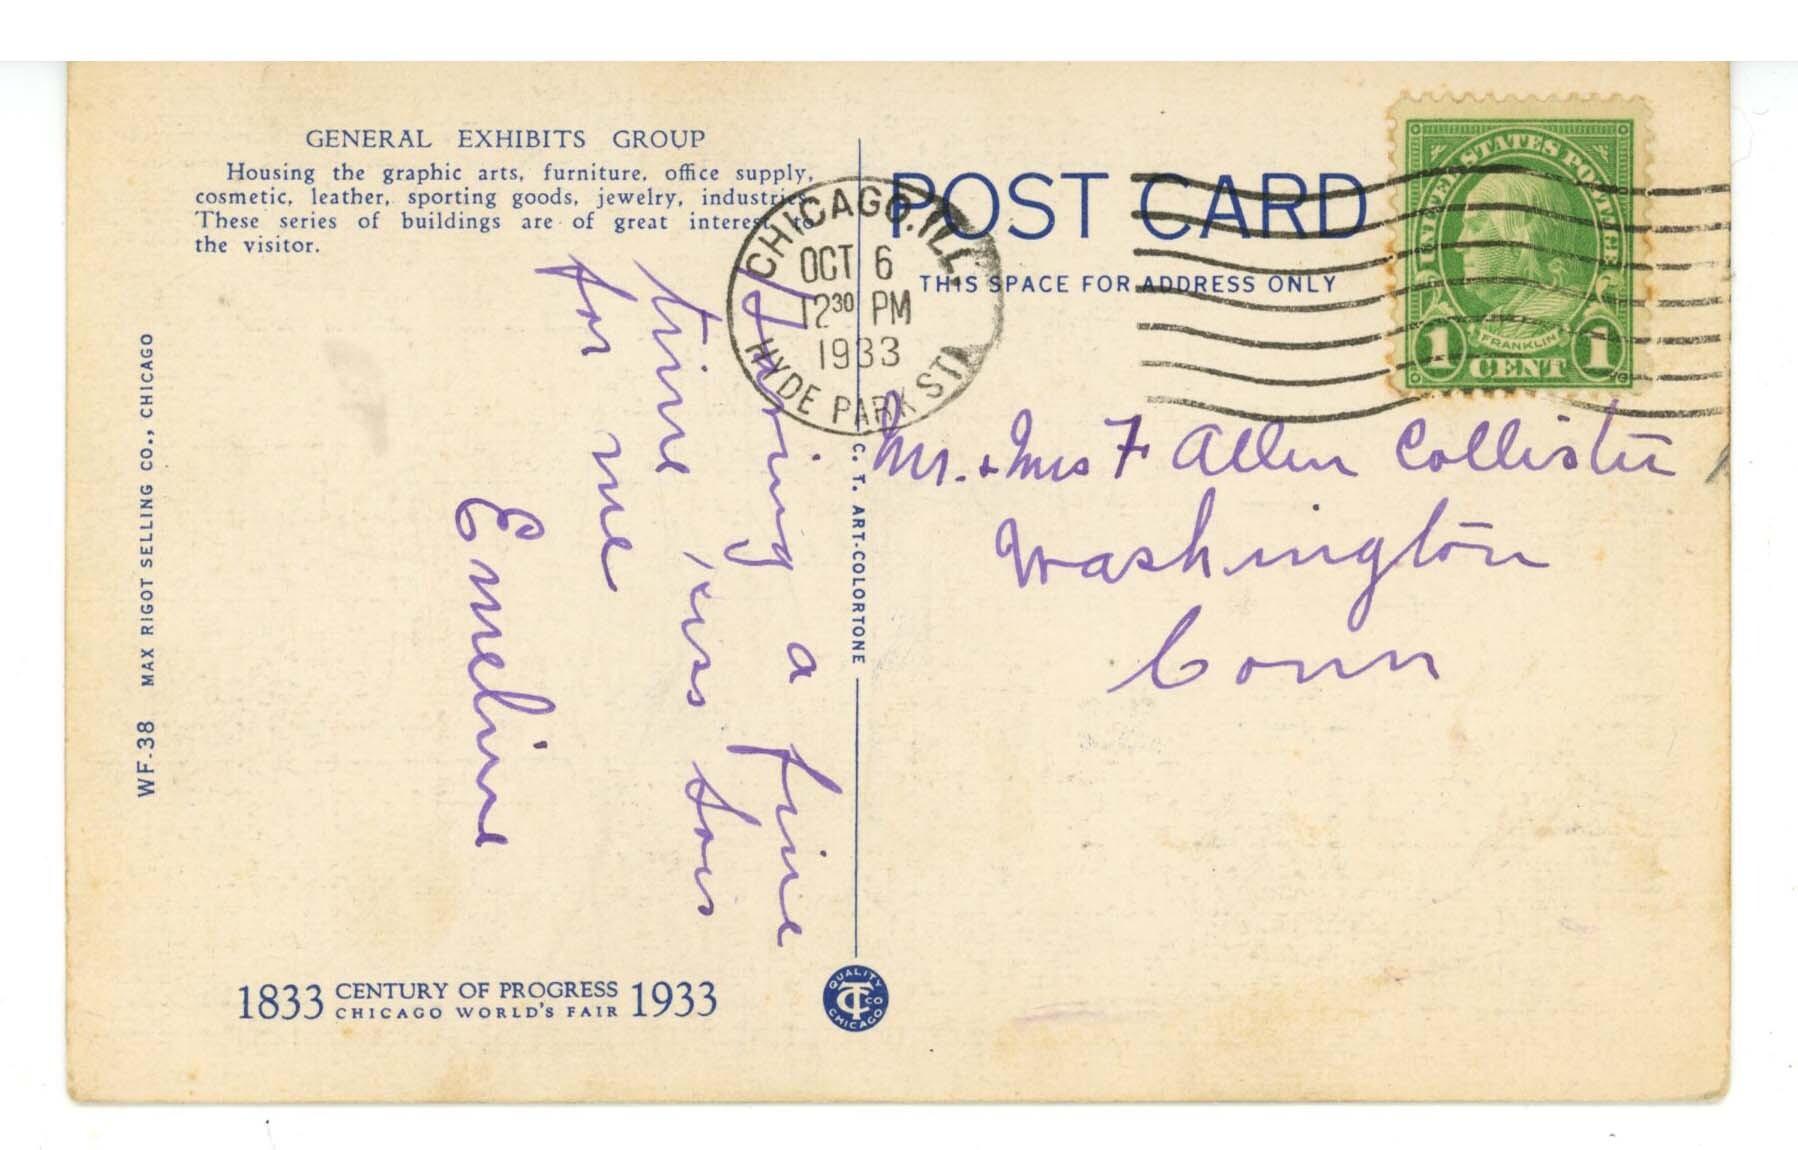 GENERAL EXHIBITS GROUP
Housing the graphic arts, furniture, office supply,
cosmetic, leather, sporting goods, jewelry, industries.
These series of buildings are of great interest to
the visitor.
Having a fine
time, Kiss Lois
for me
Emeline
WF-38 MAX RIGOT SELLING CO., CHICAGO
1833 CENTURY OF PROGRESS 1933
CHICAGO WORLD'S FAIR
C. T. ART-COLORTONE
QUALITY
CT CO
CHICAGO
CHICAGO, ILL.
OCT 6
12 30 PM
1933
HYDE PARK STA
POST CARD
THIS SPACE FOR ADDRESS ONLY
UNITED STATES POSTAGE
FRANKLIN
1 CENT 1
Mr. & Mrs F Allen Collister
Washington
Conn